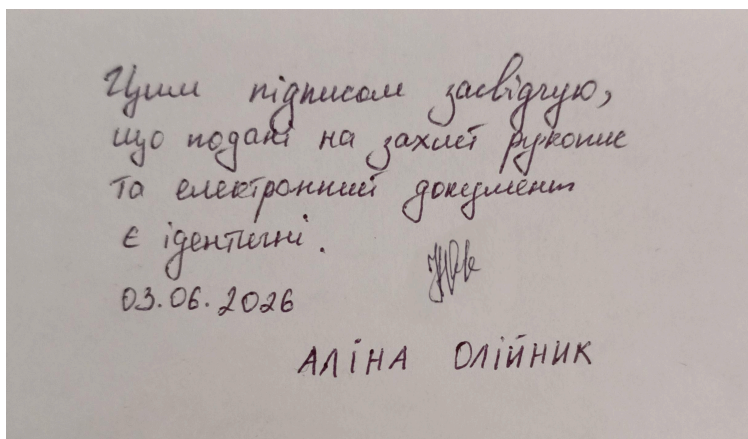 Цим підписом засвідчую,
що подані на захист рукопис
та електронний документ
є ідентичні.
03.06.2026
АЛІНА ОЛІЙНИК